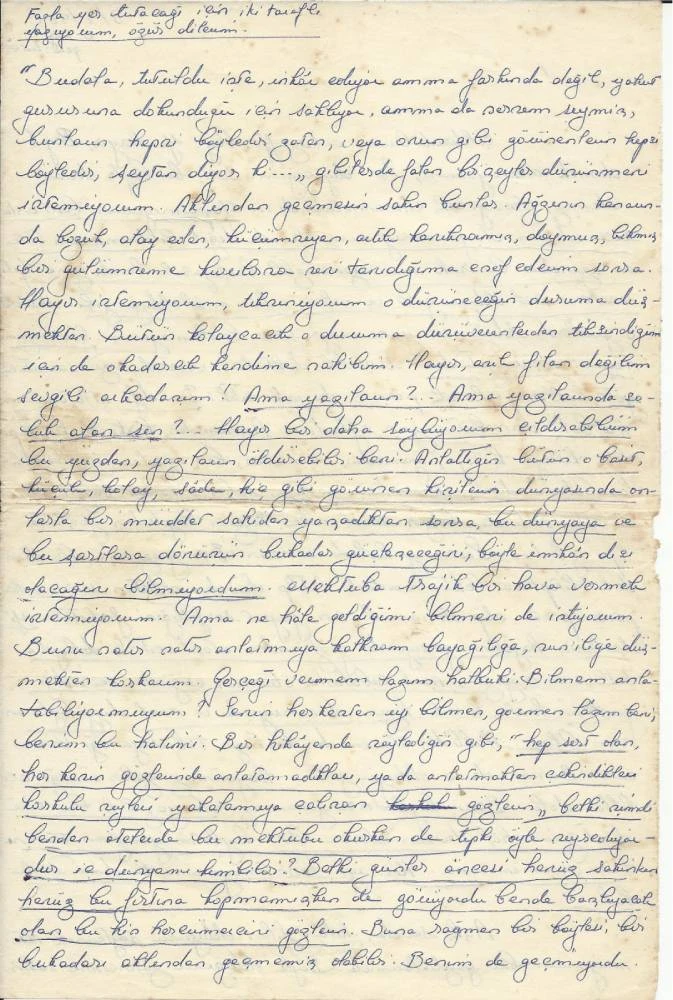 Fazla yer tutacağı için iki taraflı
yazıyorum, özür dilerim.
"Budala, tutuldu işte, inkâr ediyor amma farkında değil, yahut
gururuna dokunduğu için saklıyor, amma da sersem seymiş,
bunların hepsi böyledir zaten, veya onun gibi görünenlerin hepsi
böyledir, şeytan diyor ki...„ gibilerde falan bir şeyler düşünmeni
istemiyorum. Aklından geçmesin sakın bunlar. Ağzının kenarın-
da bozuk, alay eden, küçümseyen, artık kanıksamış, doymuş, bıkmış
bir gülümseme kıvrılırsa seni tanıdığıma esef ederim sonra.
Hayır istemiyorum, tiksiniyorum o düşüneceğin duruma düş-
mekten. Bütün kolaycacık o duruma düşüverenlerden tiksindiğim
için de okadarcık kendime sahibim. Hayır, aşık filan değilim
sevgili arkadaşım! Ama yazıların?.. Ama yazılarında sa-
klı olan sen?... Hayır bir daha söylüyorum çıldırabilirim
bu yüzden, yazıların öldürebilir beni. Anlattığın bütün o basit,
küçük, kolay, sâde, hiç gibi görünen kişilerin dünyasında on-
larla bir müddet sahiden yaşadıktan sonra, bu dünyaya ve
bu şartlara dönüşün bukadar güçleşeceğini, böyle imkân dışı
olacağını bilmiyordum. Mektuba trajik bir hava vermek
istemiyorum. Ama ne hâle geldiğimi bilmeni de istiyorum.
Bunu satır satır anlatmıya kalksam bayağılığa, sun'iliğe düş-
mekten korkarım. Gerçeği vermem lazım halbuki. Bilmem anla-
tabiliyormuyum? Senin herkesten iyi bilmen, görmen lâzım beni,
benim bu halimi. Bir hikâyende söylediğin gibi, "hep sert olan,
her kesin gözlerinde anlatamadıkları, ya da anlatmaktan çekindikleri
korkulu şeyleri yakalamıya çalışan gözlerin„ belki şimdi
benden ötelerde bu mektubu okurken de tıpkı öyle seyrediyor-
dur iç dünyamı kimbilir? Belki günler öncesi henüz sakinken
henüz bu fırtına kopmamışken de görüyordu bende başlıyacak
olan bu hın hoseurmeceri gözlerin. Buna rağmen bir böylesi, bir
bukadarı aklından geçmemiş olabilir. Benim de geçmiyordu.